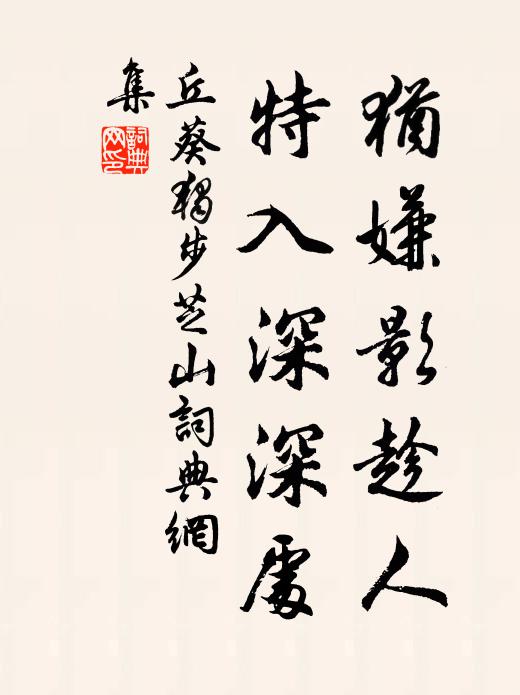 猶嫌影趁人
特入深深處
丘葵獨步芝山詞典網
集
詞典
网印